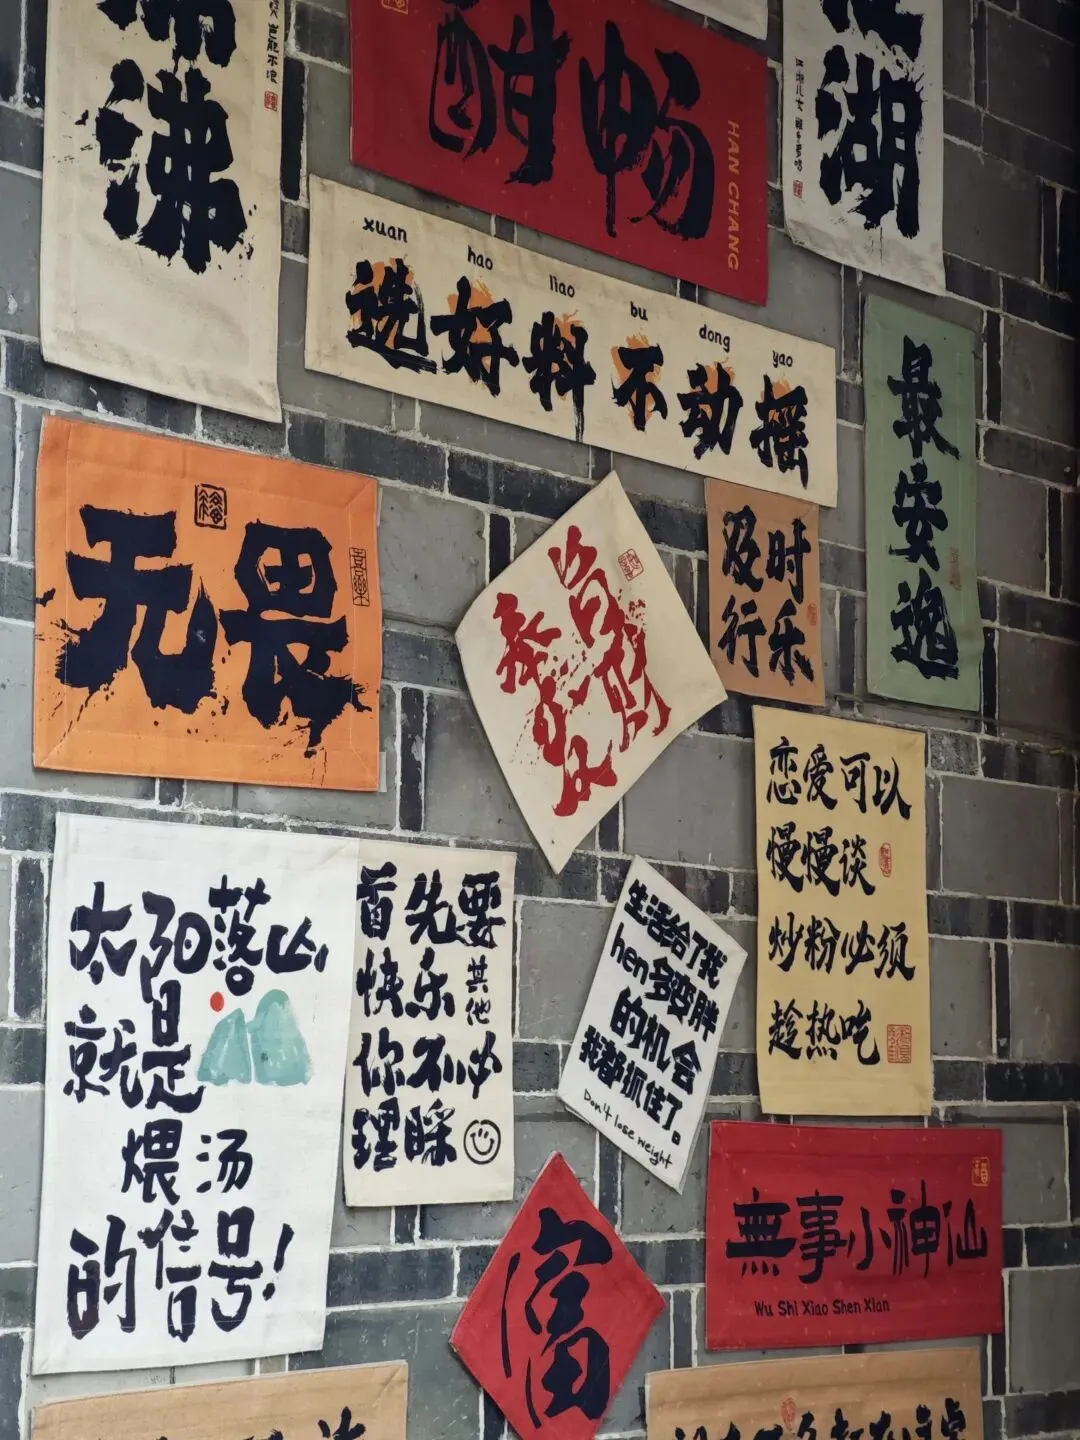 沸
酣畅
HAN CHANG
湖
xuan hao liao bu dong yao
选好料不动摇
最安逸
无畏
及时
行乐
恋爱可以
慢慢谈
炒粉必须
趁热吃
太阳落山
就是
煨汤
的信号!
首先要
快乐其他
你不必
理睬
生活给了我
hen多变胖
的机会
我都抓住了。
Don't lose weight
富
無事小神仙
Wu Shi Xiao Shen Xian